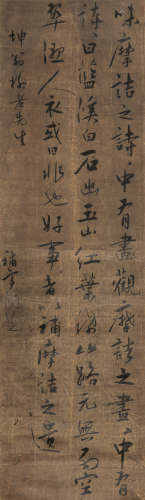 味摩詰之詩々中有畫觀摩詰之畫々中有
詩々曰藍溪白石出玉山紅葉稀山路元無雨空
翠溼人衣或曰非也好事者以補摩詰之遺
坤翁老先生